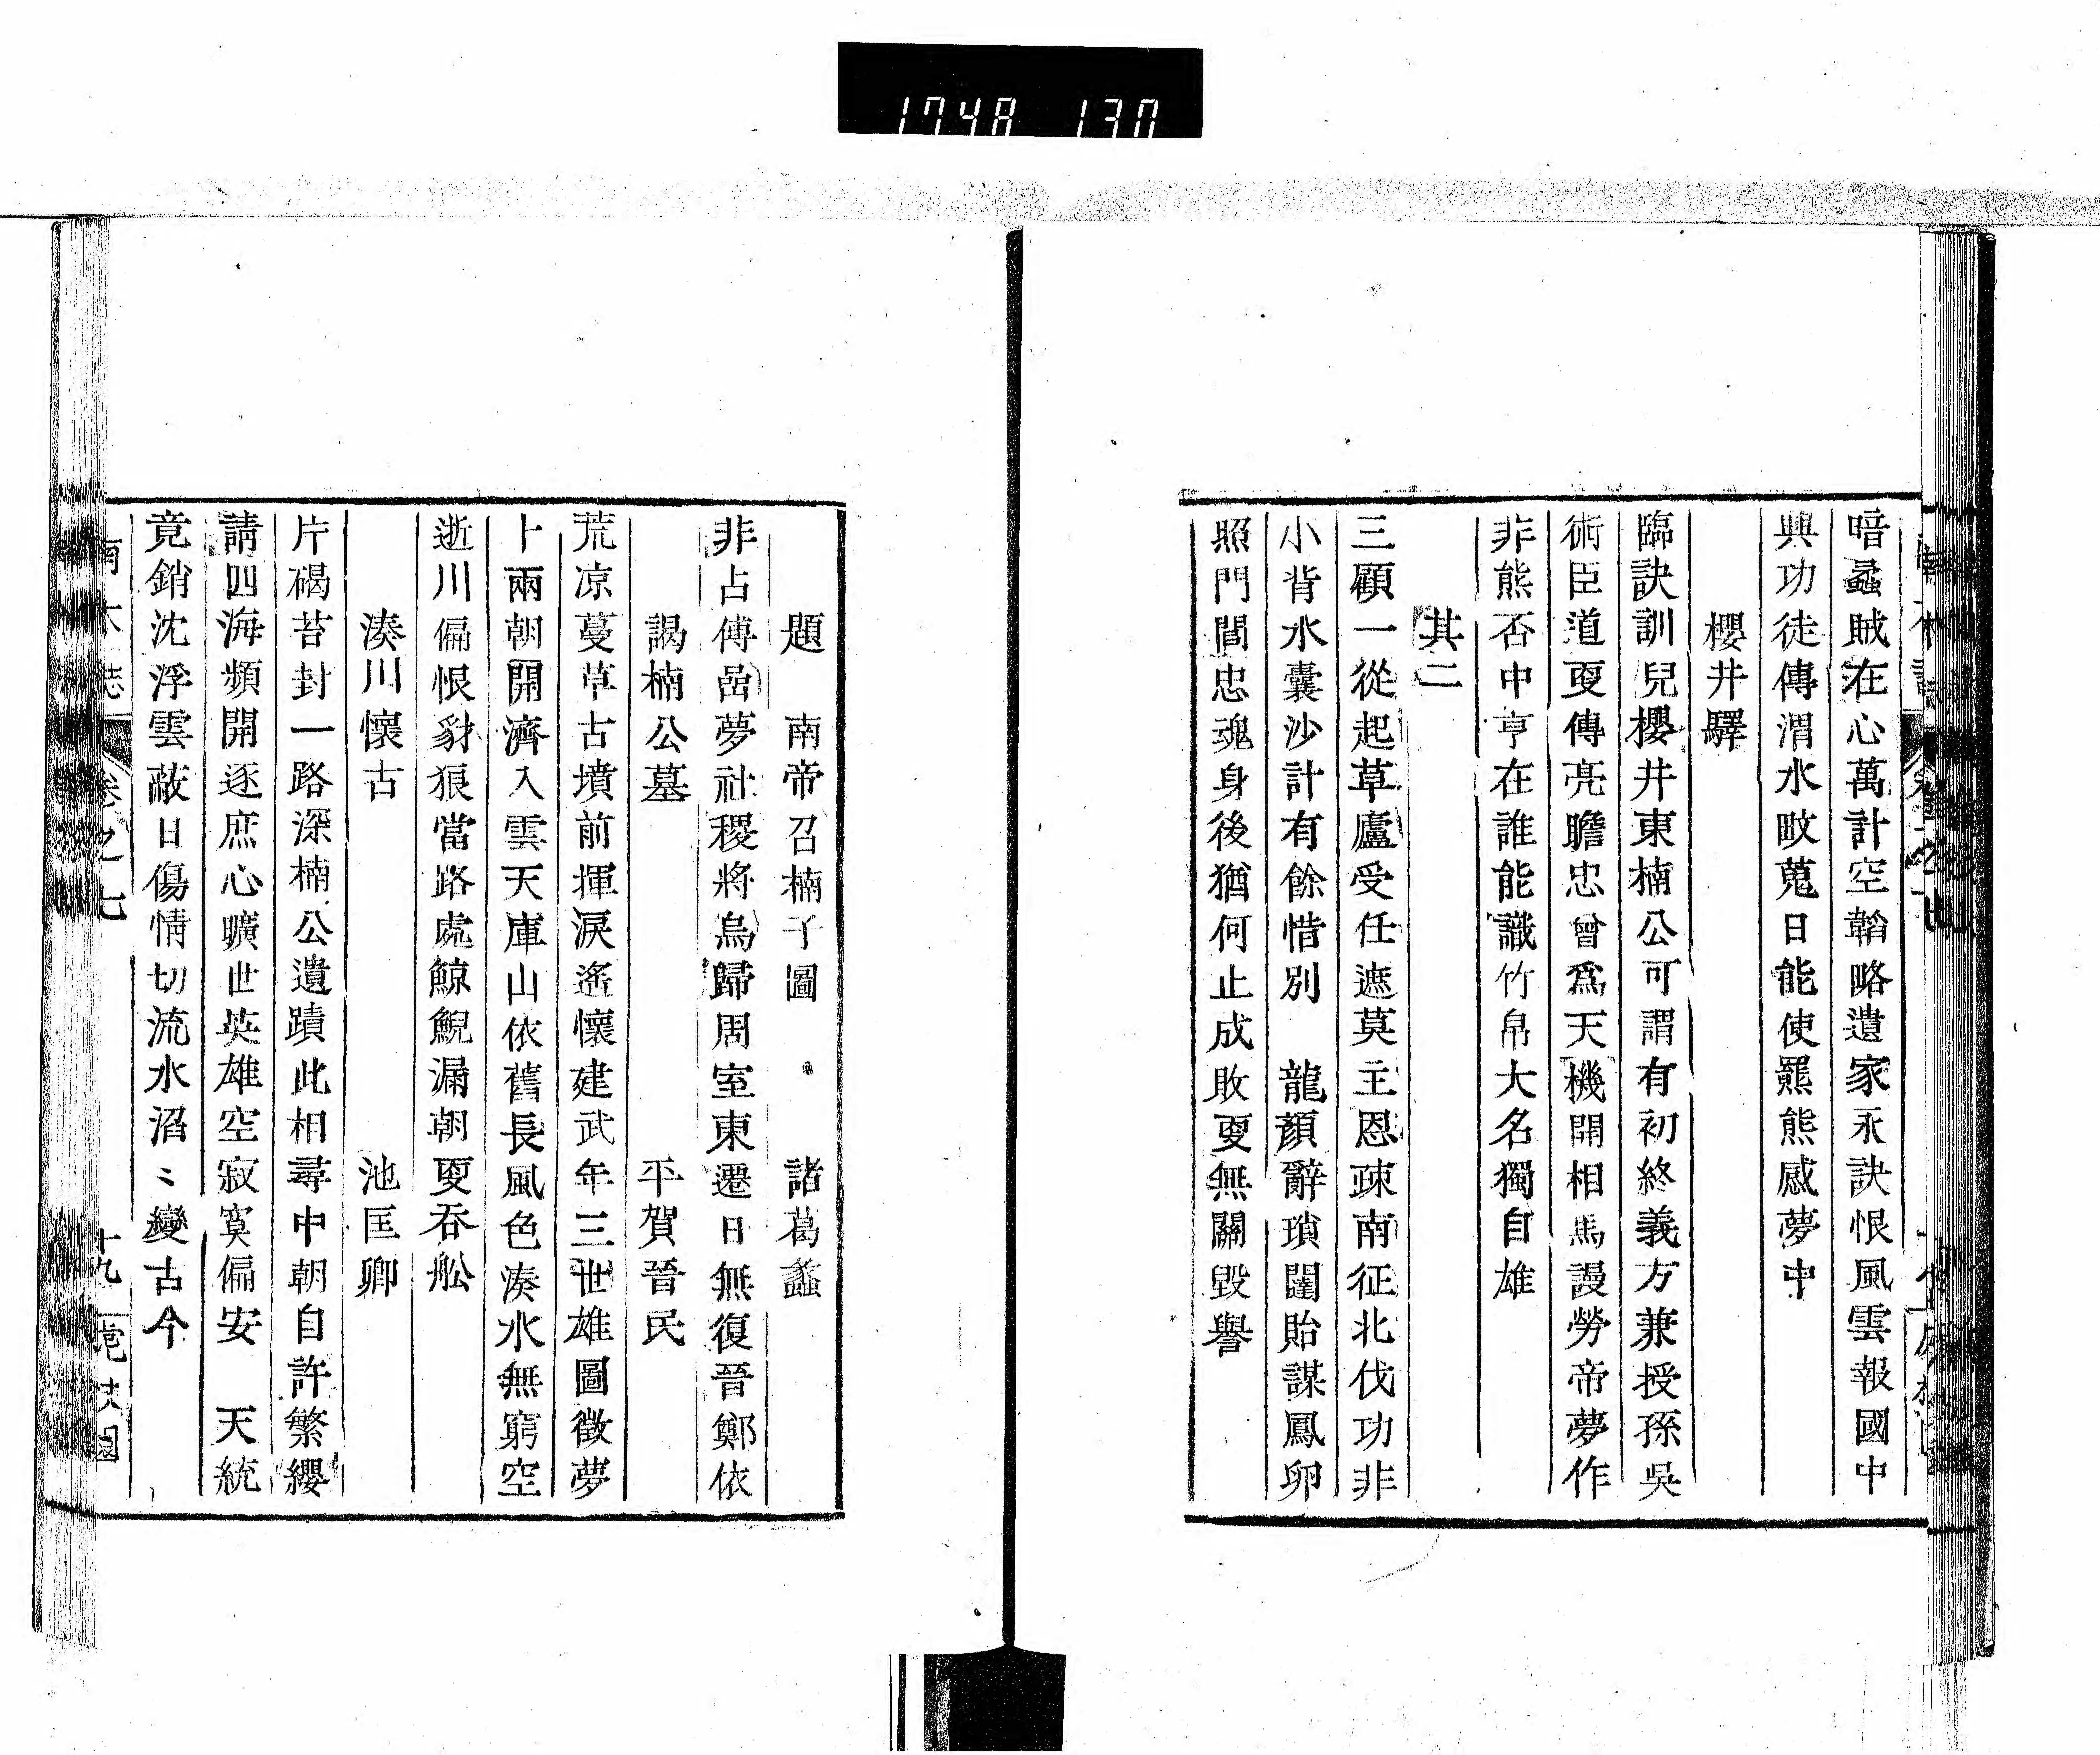 1748 130
暗蟊賊在心萬計空韜略遺家永訣恨風雲報國中
興功徒傳渭水畋蒐日能使羆熊感夢中
櫻井驛
臨訣訓兒櫻井東楠公可謂有初終義方兼授孫吳
術臣道更傳亮瞻忠曾爲天機開相馬謾勞帝夢作
非熊否中亨在誰能識竹帛大名獨自雄
其二
三顧一從起草廬受任遮莫主恩疎南征北伐功非
小背水囊沙計有餘惜別　龍顏辭瑣闈貽謀鳳卵
照門閭忠魂身後猶何止成敗更無關毀譽
題　南帝召楠子圖　諸葛蠡
非占傅嵒夢社稷將烏歸周室東遷日無復晉鄭依
謁楠公墓　平賀晉民
荒凉蔓草古墳前揮淚遙懷建武年三世雄圖徵夢
卜兩朝開濟入雲天庫山依舊長風色湊水無窮空
逝川偏恨豺狼當路處鯨鯢漏朝更吞舩
湊川懷古　池匡卿
片碣苔封一路深楠公遺蹟此相尋中朝自許繁纓
請四海頻開逐庶心曠世英雄空寂寞偏安　天統
竟銷沈浮雲蔽日傷情切流水滔〻變古今
南木誌　卷之七　十九